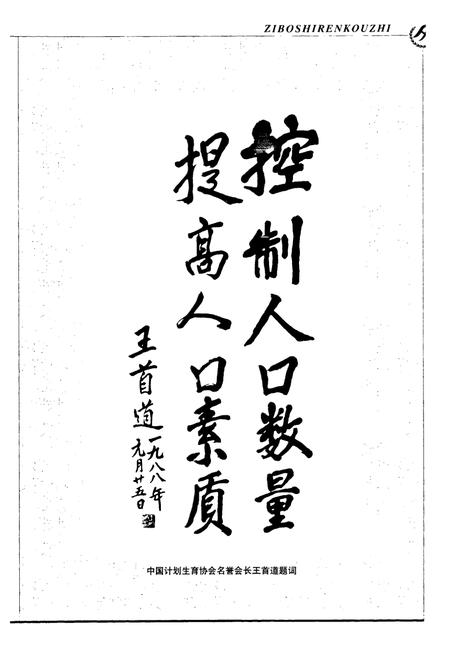 ZIBOSHIRENKOUZHI
控制人口数量
提高人口素质
王首道
一九八八年
元月廿五日
中国计划生育协会名誉会长王首道题词